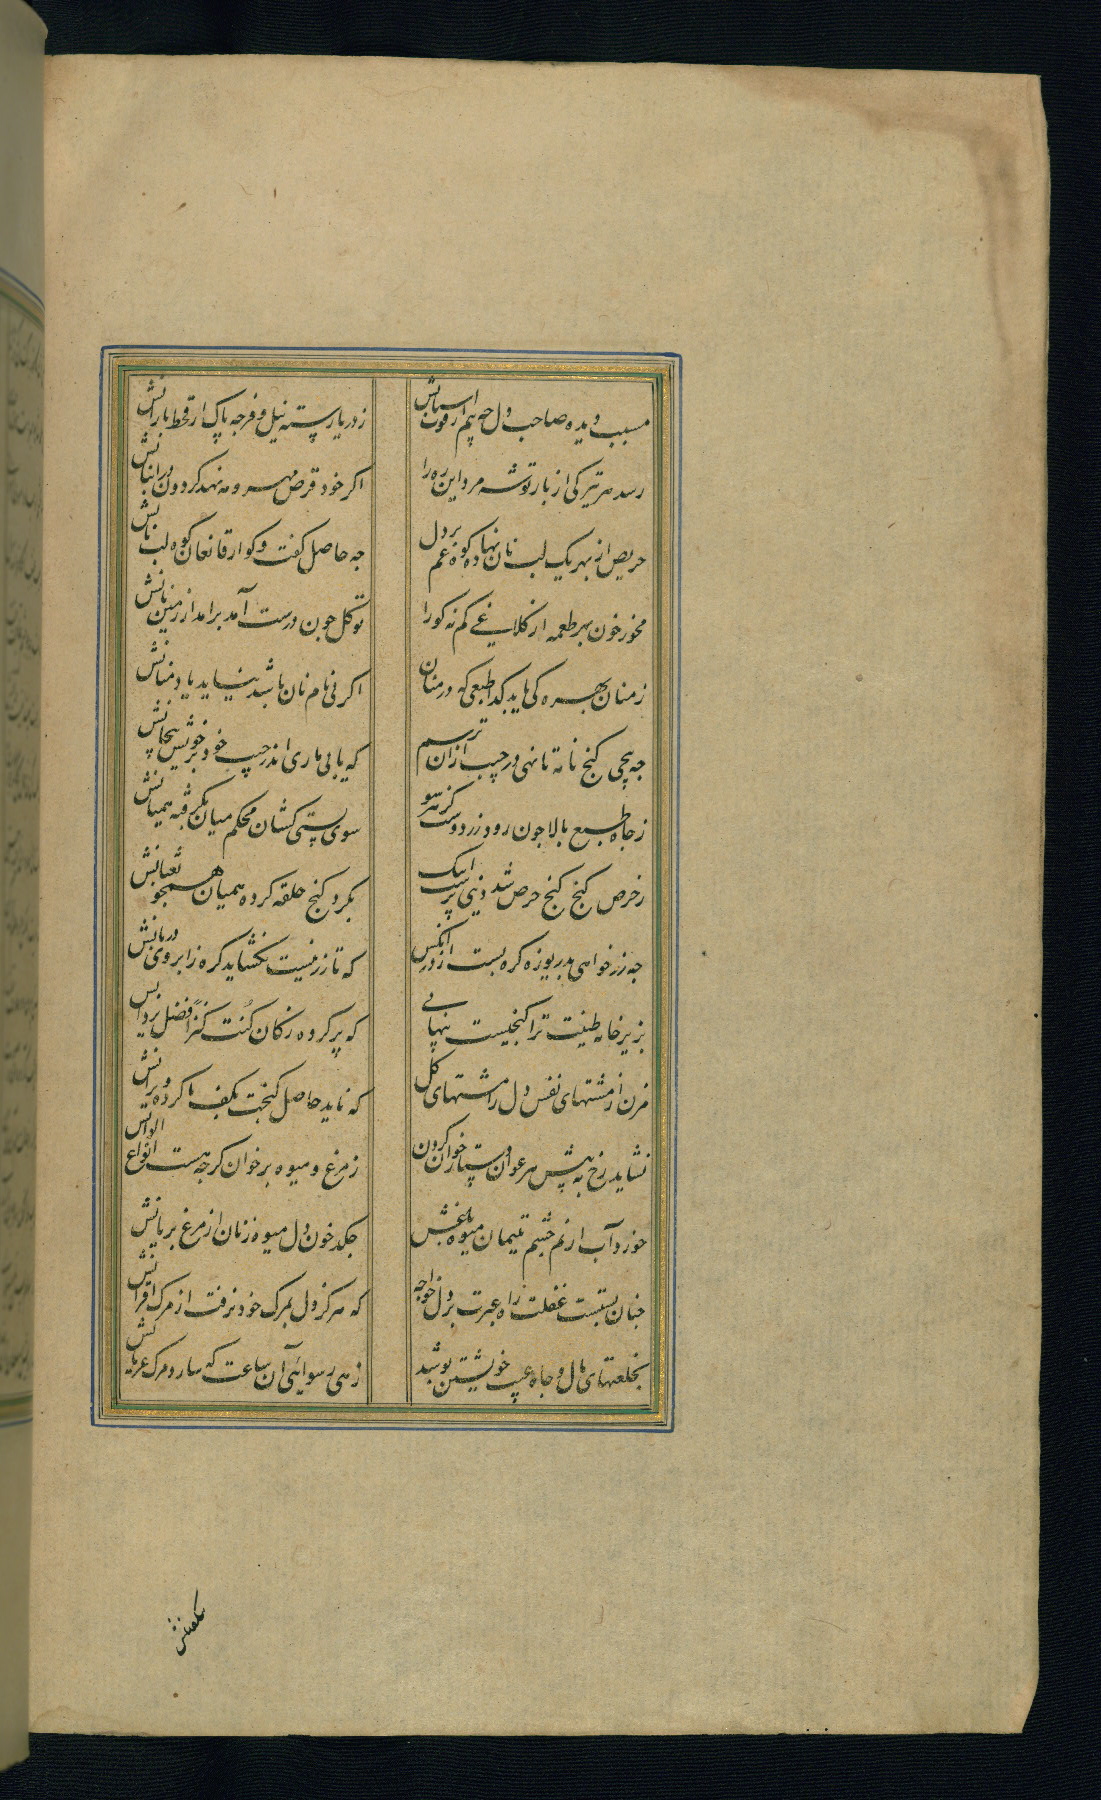 مسبب دیده صاحب دل چه بیم از فوت اسبابش زدریا رسته نیل و فرجه پاک از قحط بارانش
رسد هر تیرکی از بار توشه مرد این ره را اکر خود قرص مهر و مه نهد کردون در انبانش
حریص از بهر یک لب نان نهاده کوه غم بردل جه حاصل کفت وکو ار قانعان کوه لب نانش
مخور خون بهر طعمه از کلاغی کم نه کورا توکل جون درست آمد برامد از زمین نانش
زمنان بهره کی یابد کدا طبعی که درمنان اکر نی نام نان باشد نیاید یاد منانش
جه پیچی کنج نامه تا نهی درجیب ازان ترسم که یابی ماری اندر جیب خود بر خویش پیچانش
زجاه طبع بالا جون رود زر دوست کز هر سو سوی پستی کشان محکم میان بکرفته همیانش
زحرص کنج کنج حرص شد دنیی پرست اینک بکرد کنج حلقه کرده همیان همجو ثعبانش
جه زر خواهی بدریوزه کره بست از در انکس که تا زر نیست نکشاید کره زابروی دربانش
بزیر خایه طینت ترا کنجیست پنهانی که پر کرده زکان کنت کنزا فضل یزدانش
مزن از مشتهای نفس دل را مشتهای کل که ناید حاصل کنجت بکف ناکرده ویرانش
نشاید رخ به پیش هر عوان دستار خوان کردن زمرغ و میوه برخوان کرجه هست انواع الوانش
خورد آب از نم چشم یتیمان میوه باغش جکد خون دل میوه زنان از مرغ بریانش
جنان بستست غفلت راه عبرت بر دل خواجه که هرکز دل بمرک خود نرفت از مرک اقرانش
بخلعتهای مال و جاه عیب خویشتن پوشد زهی رسوائی آن ساعت که سازد مرک عریانش